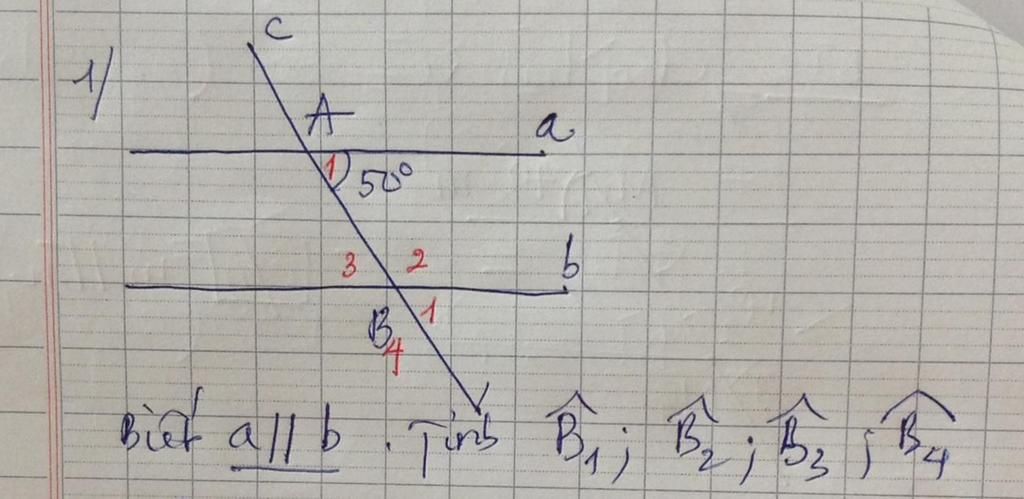 1/
c
A
a
1
50°
3 2
b
B
1
4
Biết a // b . Tính B̂₁ ; B̂₂ ; B̂₃ ; B̂₄